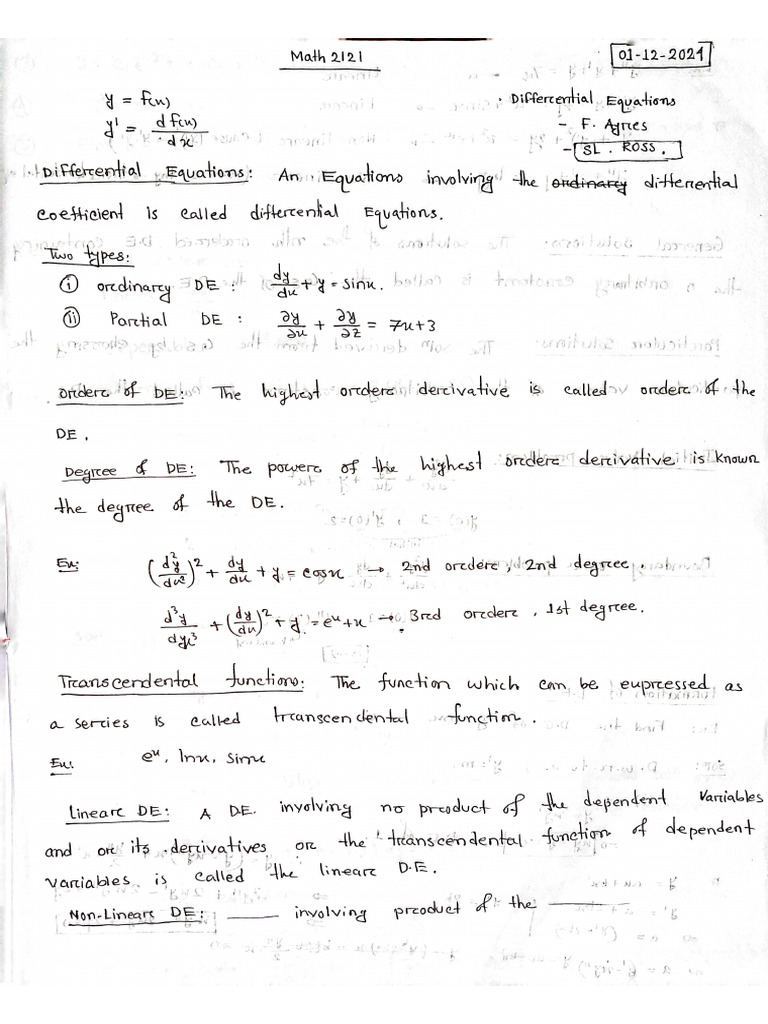 Math 2121
01-12-2021
y = f(x)
y' = d f(x) / dx
Differential Equations
- F. Ayres
- SL. ROSS.
Differential Equations: An Equations involving the ordinary differential
coefficient is called differential Equations.
Two types:
(i) ordinary DE : dy/dx + y = sinx.
(ii) Partial DE : ∂y/∂x + ∂y/∂z = 7x+3
Order of DE: The highest order derivative is called order of the
DE.
Degree of DE: The power of the highest order derivative is known
the degree of the DE.
Ex: (d²y/dx²)² + dy/dx + y = cosx → 2nd order, 2nd degree.
d³y/dx³ + (dy/dx)² + y = eˣ+x → 3rd order, 1st degree.
Transcendental functions: The function which can be expressed as
a series is called transcendental function.
Ex: eˣ, lnx, sinx
Linear DE: A DE. involving no product of the dependent variables
and or its derivatives or the transcendental function of dependent
variables is called the linear D.E.
Non-Linear DE: ____ involving product of the ____